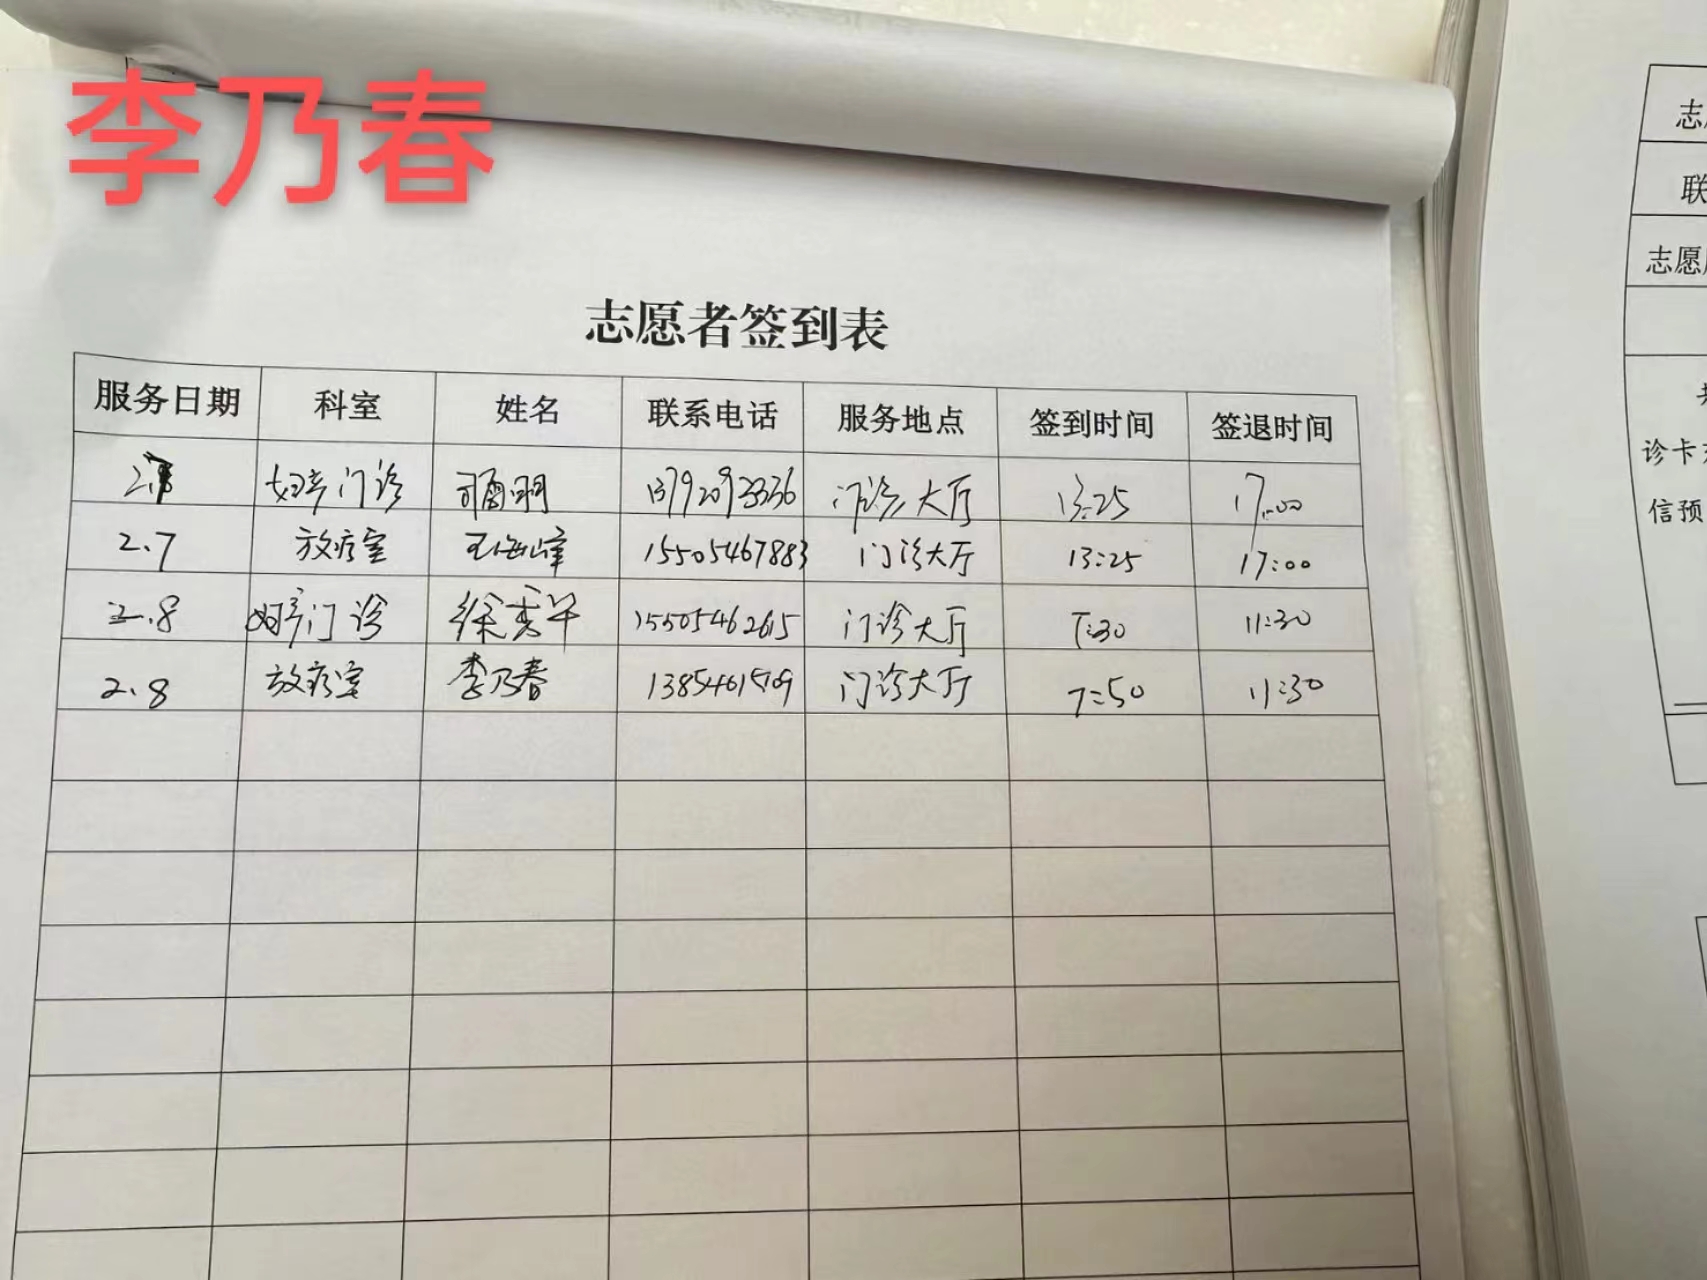 李乃春
志愿者签到表
服务日期 科室 姓名 联系电话 服务地点 签到时间 签退时间
妇产门诊 13792093336 门诊大厅 13:25 17:00
2.7 放疗室 王海峰 15505467883 门诊大厅 13:25 17:00
2.8 妇产门诊 15505462615 门诊大厅 7:30 11:30
2.8 放疗室 李乃春 门诊大厅 7:50 11:30
志
联
志愿
诊卡
信预